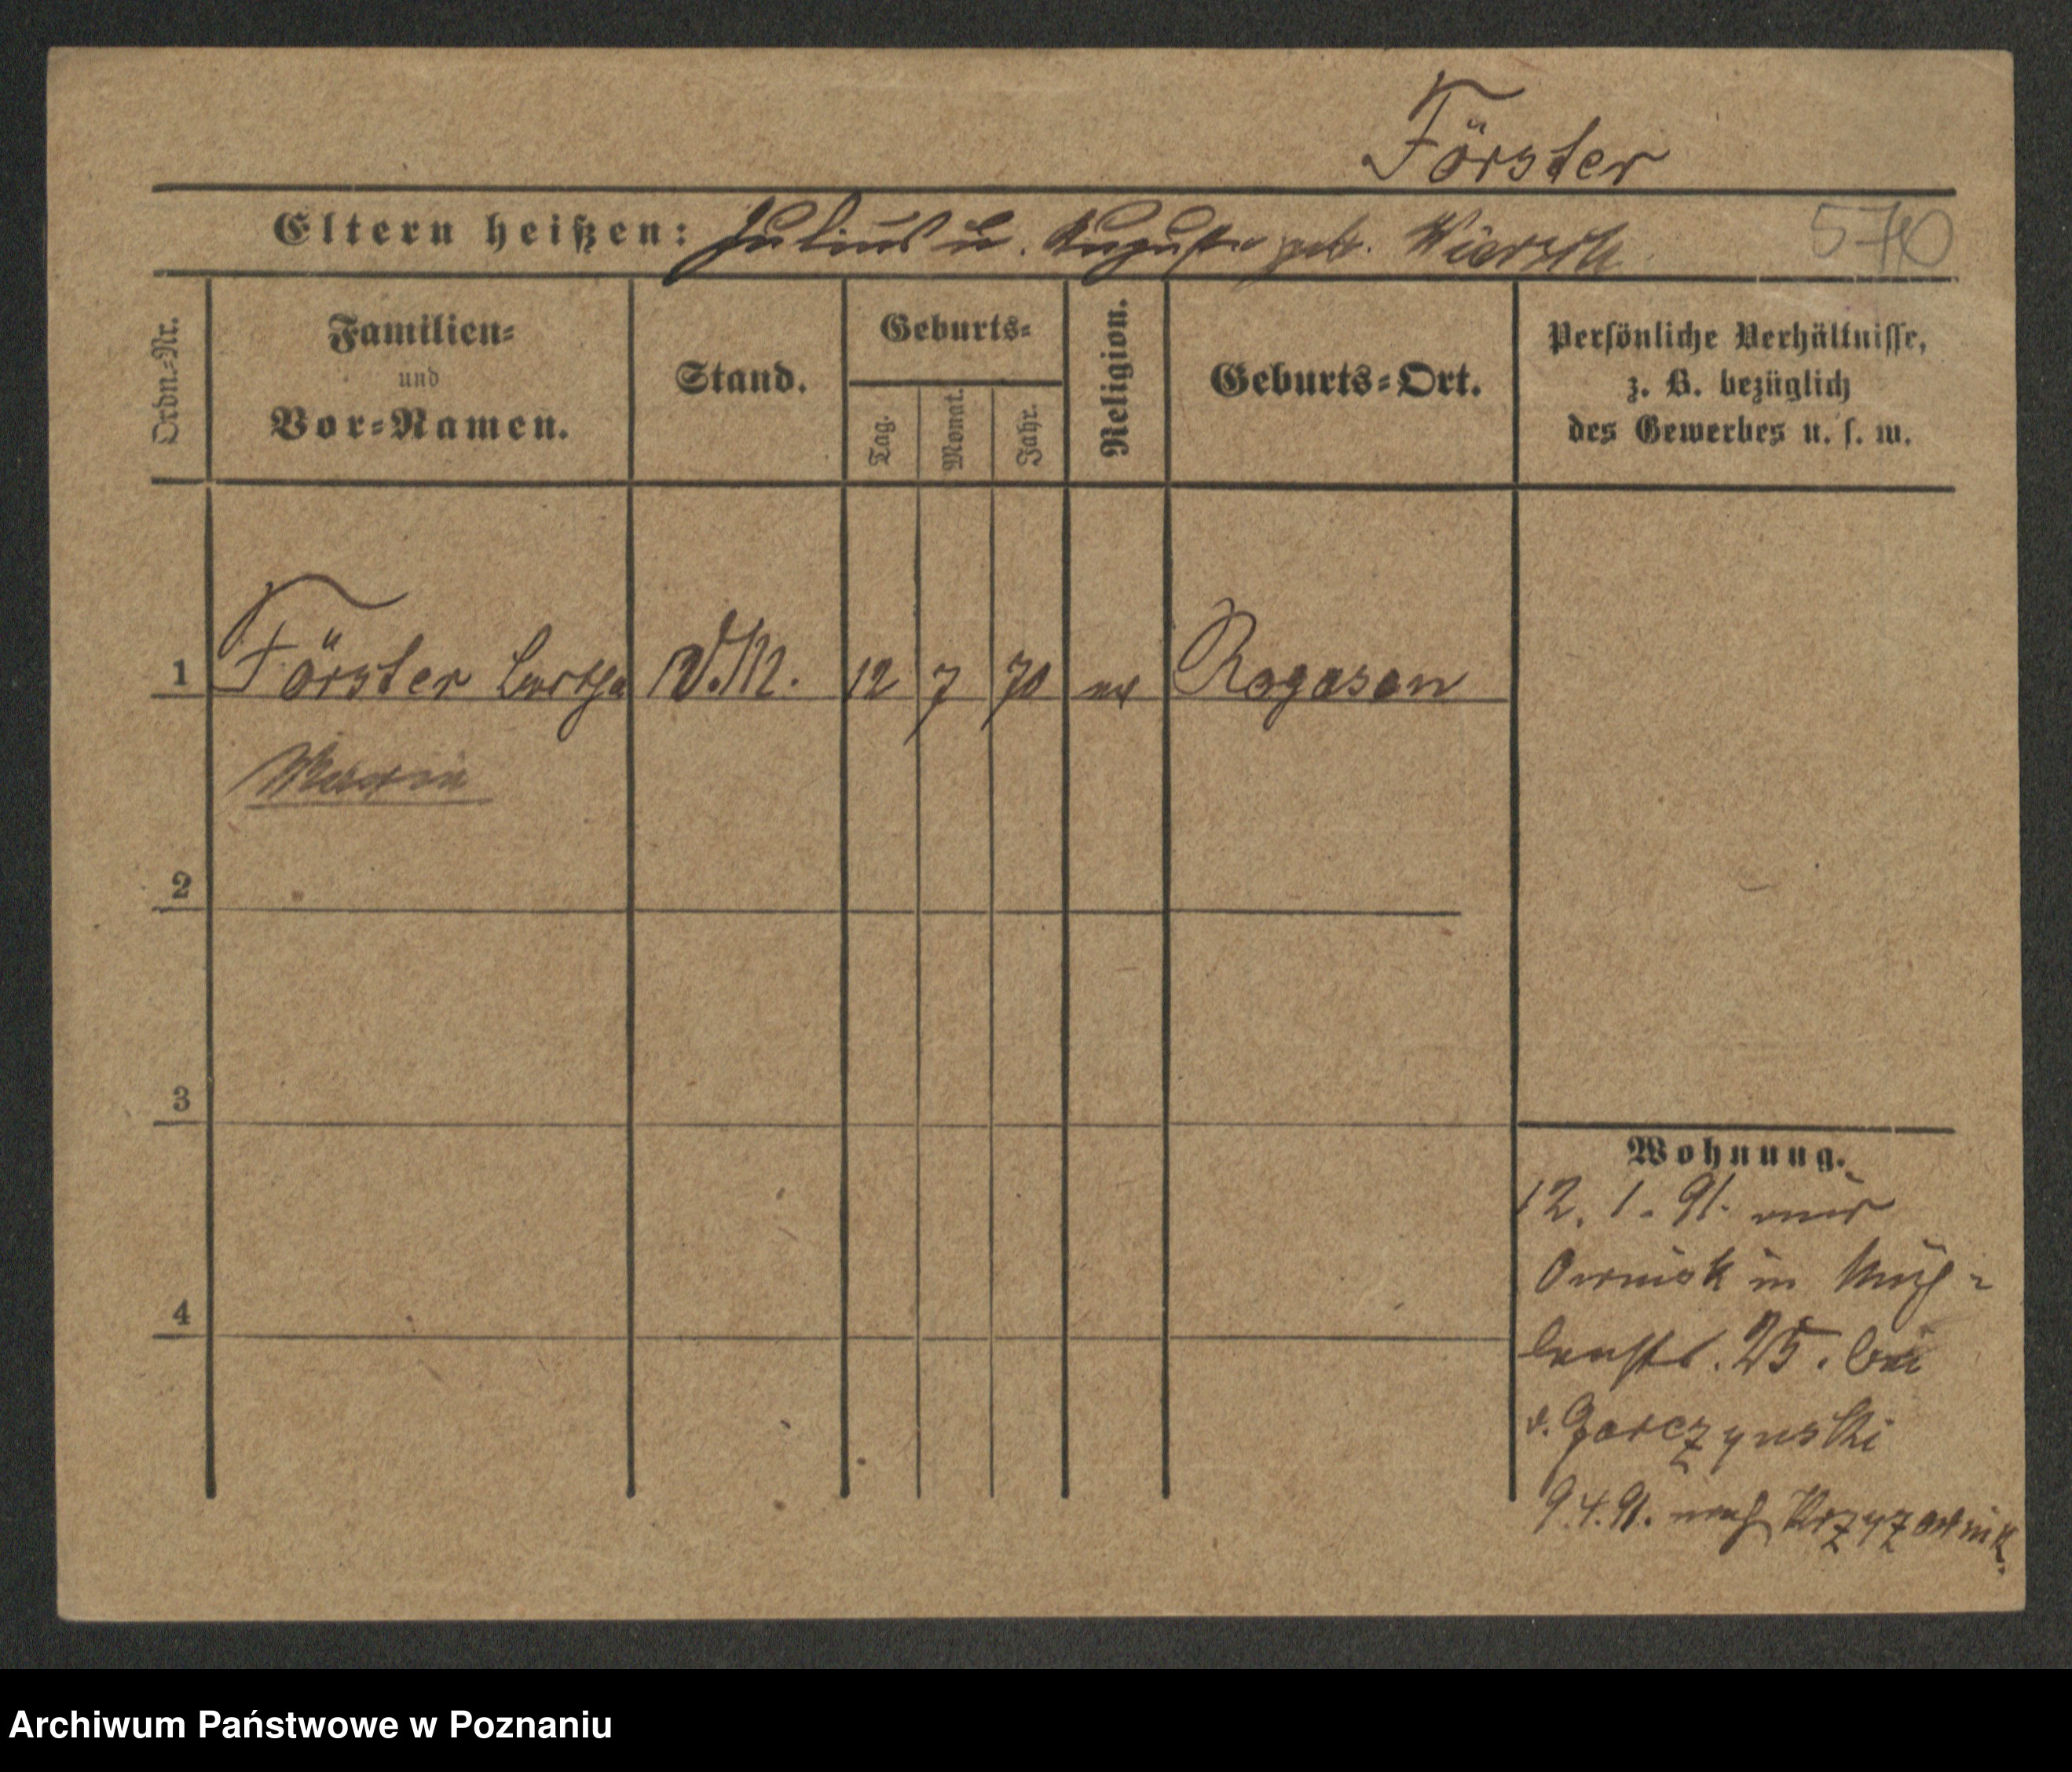 Förster
Eltern heißen: Julius u. Auguste geb.
Ordn.-Nr.
Familien-
und
Vor-Namen.
Stand.
Geburts-
Tag.
Monat.
Jahr.
Religion.
Geburts-Ort.
Persönliche Verhältnisse,
z. B. bezüglich
des Gewerbes u. s. w.
1 Förster 12 7 70 Rogasen
2
3
4
Wohnung.
12. 1. 91. aus
Owinsk in Müh-
lenstr. 25. bei
v. Garczynski
9.4.91. nach
Archiwum Państwowe w Poznaniu